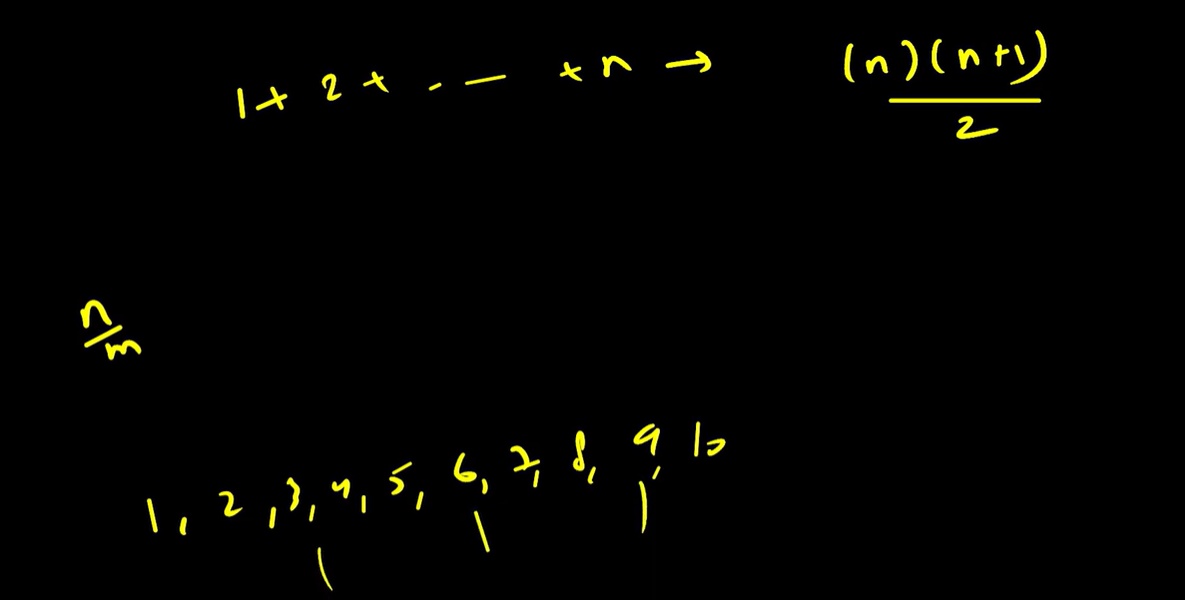 1 + 2 + . — + n → (n)(n+1)/2
n/m
1, 2, 3, 4, 5, 6, 7, 8, 9, 10